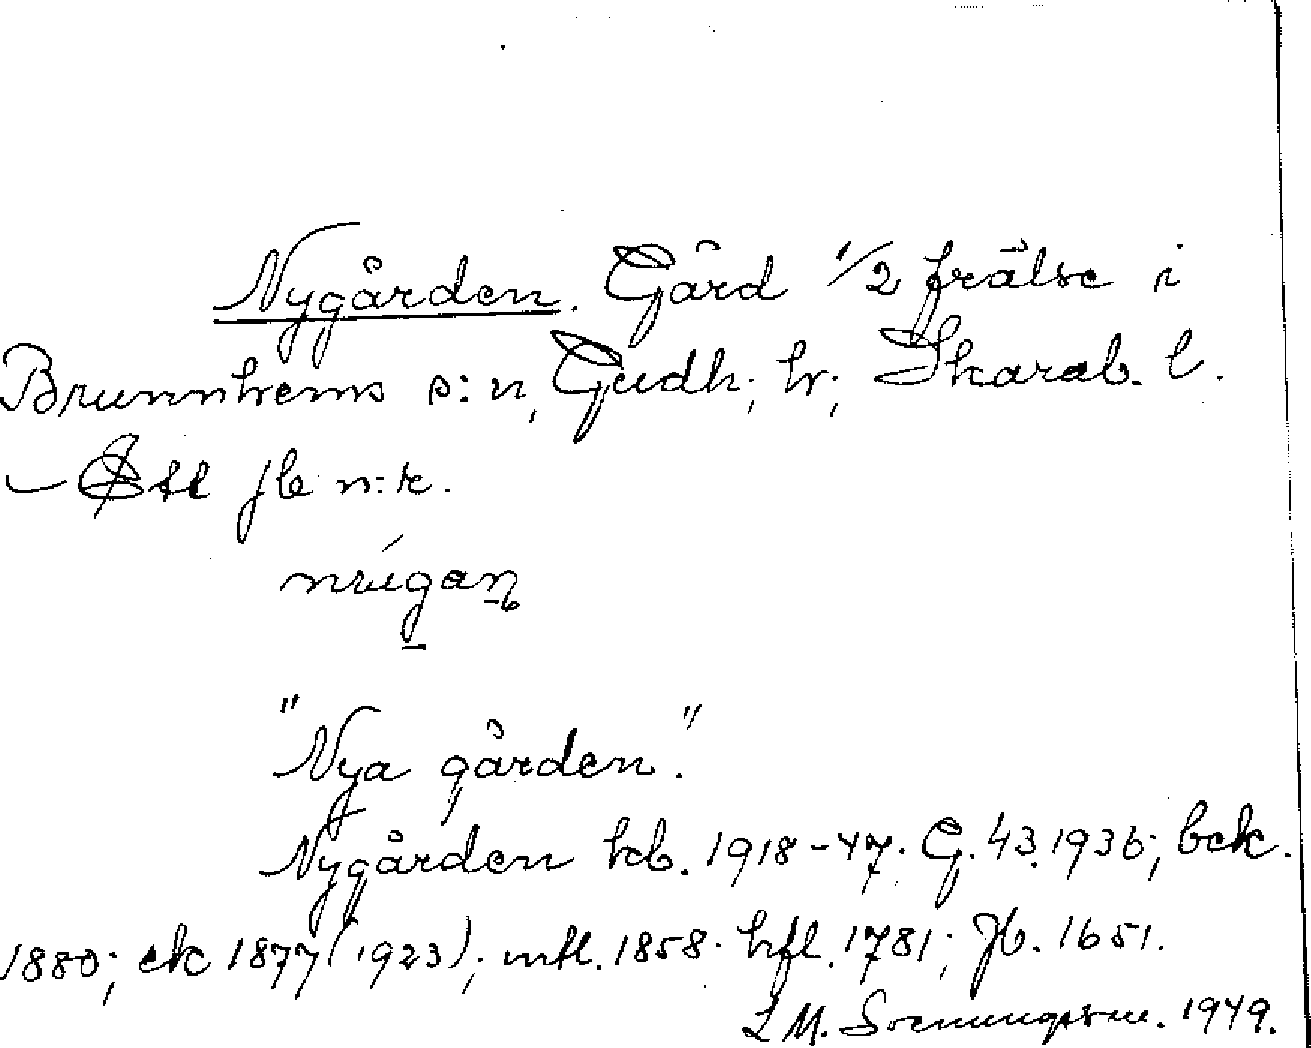 Nygården. Gård 1/2 frälse i
Brunnhems s:n, Gudh. hr, Skarab. l.
– Ett jb n:r.
"Nya gården."
Nygården kb. 1918-47. G. 43. 1936; bek.
1880; ek 1877 (1923); mtl. 1858. hfl. 1781; Jb. 1651.
L M. Svenungsson. 1949.